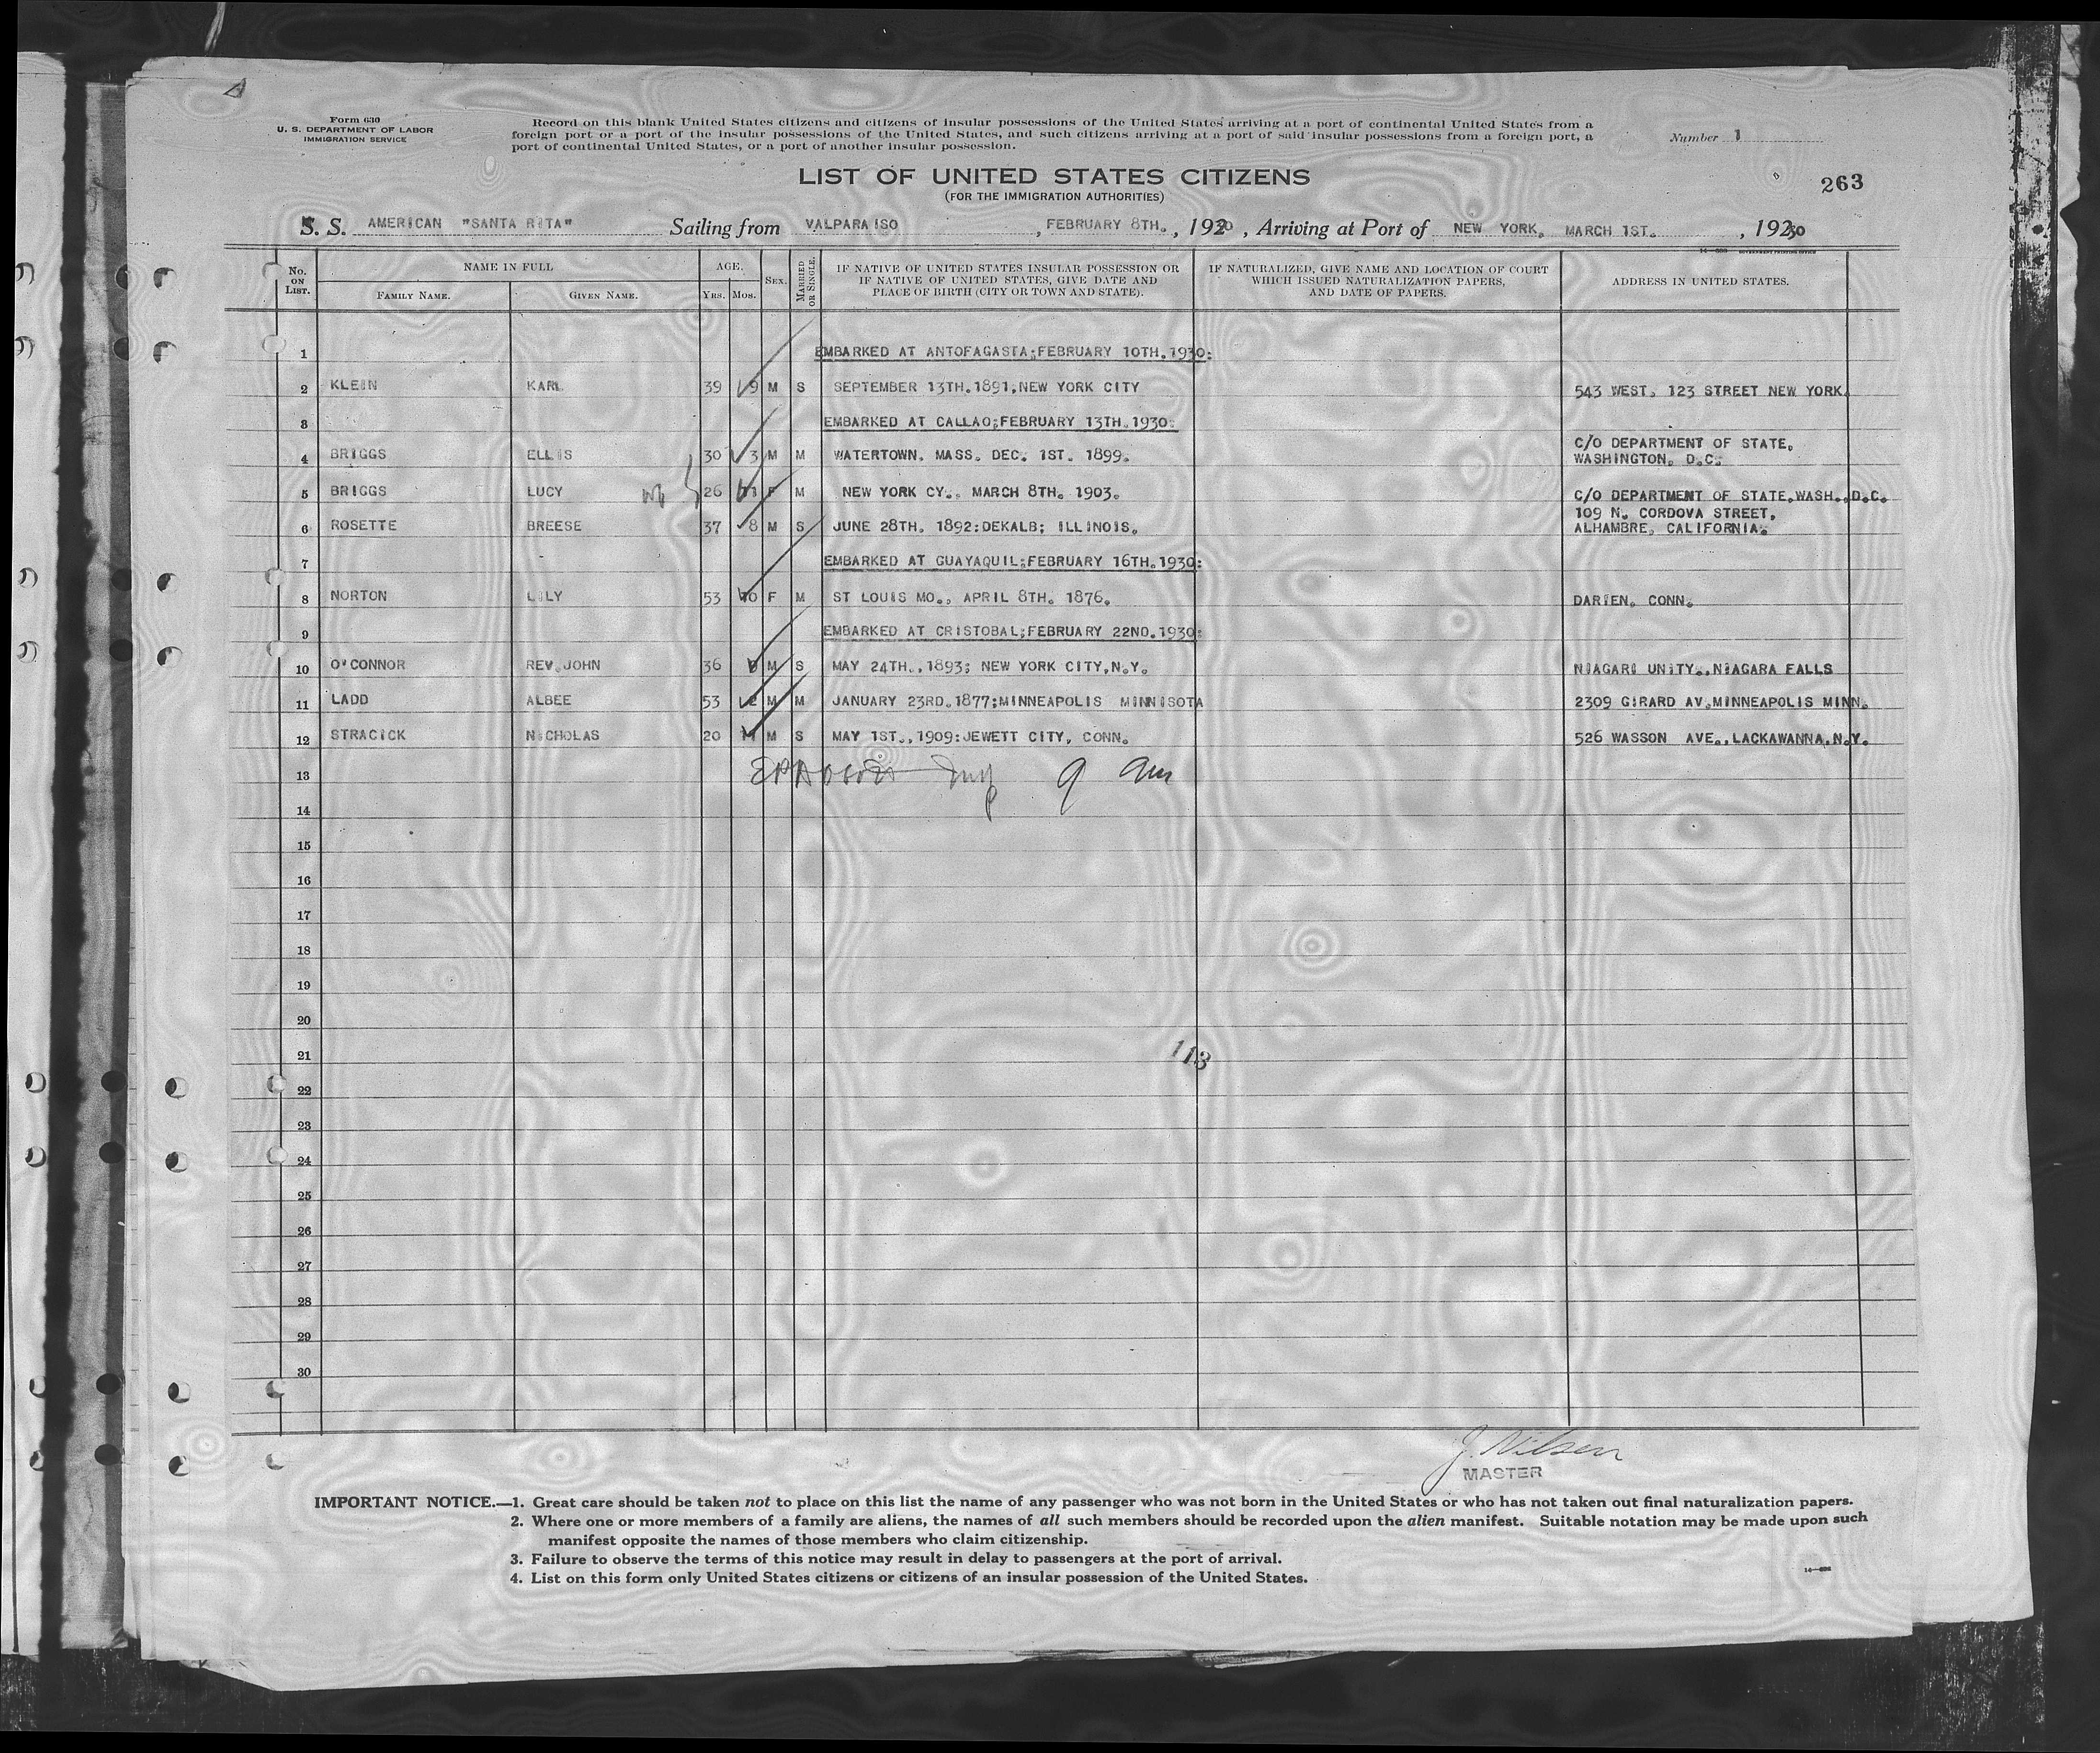 Form 630
U. S. DEPARTMENT OF LABOR
IMMIGRATION SERVICE
Record on this blank United States citizens and citizens of insular possessions of the United States arriving at a port of continental United States from a
foreign port or a port of the insular possessions of the United States, and such citizens arriving at a port of said insular possessions from a foreign port, a
port of continental United States, or a port of another insular possession.
Number 1
LIST OF UNITED STATES CITIZENS
(FOR THE IMMIGRATION AUTHORITIES)
263
S. S. AMERICAN "SANTA RITA" Sailing from VALPARAISO , FEBRUARY 8TH. , 1930 , Arriving at Port of NEW YORK. MARCH 1ST. , 1930
14—688 GOVERNMENT PRINTING OFFICE
No. ON LIST. NAME IN FULL AGE. SEX. MARRIED OR SINGLE. IF NATIVE OF UNITED STATES INSULAR POSSESSION OR IF NATIVE OF UNITED STATES, GIVE DATE AND PLACE OF BIRTH (CITY OR TOWN AND STATE). IF NATURALIZED, GIVE NAME AND LOCATION OF COURT WHICH ISSUED NATURALIZATION PAPERS, AND DATE OF PAPERS. ADDRESS IN UNITED STATES.
FAMILY NAME. GIVEN NAME. YRS. MOS.
1 EMBARKED AT ANTOFAGASTA;FEBRUARY 10TH.1930:
2 KLEIN KARL 39 9 M S SEPTEMBER 13TH.1891,NEW YORK CITY 543 WEST. 123 STREET NEW YORK.
3 EMBARKED AT CALLAO;FEBRUARY 13TH.1930:
4 BRIGGS ELLIS 30 3 M M WATERTOWN. MASS. DEC. 1ST. 1899. C/O DEPARTMENT OF STATE. WASHINGTON. D.C.
5 BRIGGS LUCY 26 11 F M NEW YORK CY.. MARCH 8TH. 1903. C/O DEPARTMENT OF STATE.WASH..D.C.
6 ROSETTE BREESE 37 8 M S JUNE 28TH. 1892:DEKALB; ILLINOIS. 109 N. CORDOVA STREET, ALHAMBRE. CALIFORNIA.
7 EMBARKED AT GUAYAQUIL;FEBRUARY 16TH.1930:
8 NORTON LILY 53 10 F M ST LOUIS MO., APRIL 8TH. 1876. DARIEN. CONN.
9 EMBARKED AT CRISTOBAL;FEBRUARY 22ND.1930:
10 O'CONNOR REV.JOHN 36 9 M S MAY 24TH.,1893; NEW YORK CITY,N.Y. NIAGARI UNITY.,NIAGARA FALLS
11 LADD ALBEE 53 2 M M JANUARY 23RD.1877;MINNEAPOLIS MINNISOTA 2309 GIRARD AV.MINNEAPOLIS MINN.
12 STRACICK NICHOLAS 20 11 M S MAY 1ST.,1909:JEWETT CITY, CONN. 526 WASSON AVE.,LACKAWANNA.N.Y.
13
14
15
16
17
18
19
20
21
113
22
23
24
25
26
27
28
29
30
J. Nilsen
MASTER
IMPORTANT NOTICE.—1. Great care should be taken not to place on this list the name of any passenger who was not born in the United States or who has not taken out final naturalization papers.
2. Where one or more members of a family are aliens, the names of all such members should be recorded upon the alien manifest. Suitable notation may be made upon such
manifest opposite the names of those members who claim citizenship.
3. Failure to observe the terms of this notice may result in delay to passengers at the port of arrival.
4. List on this form only United States citizens or citizens of an insular possession of the United States.